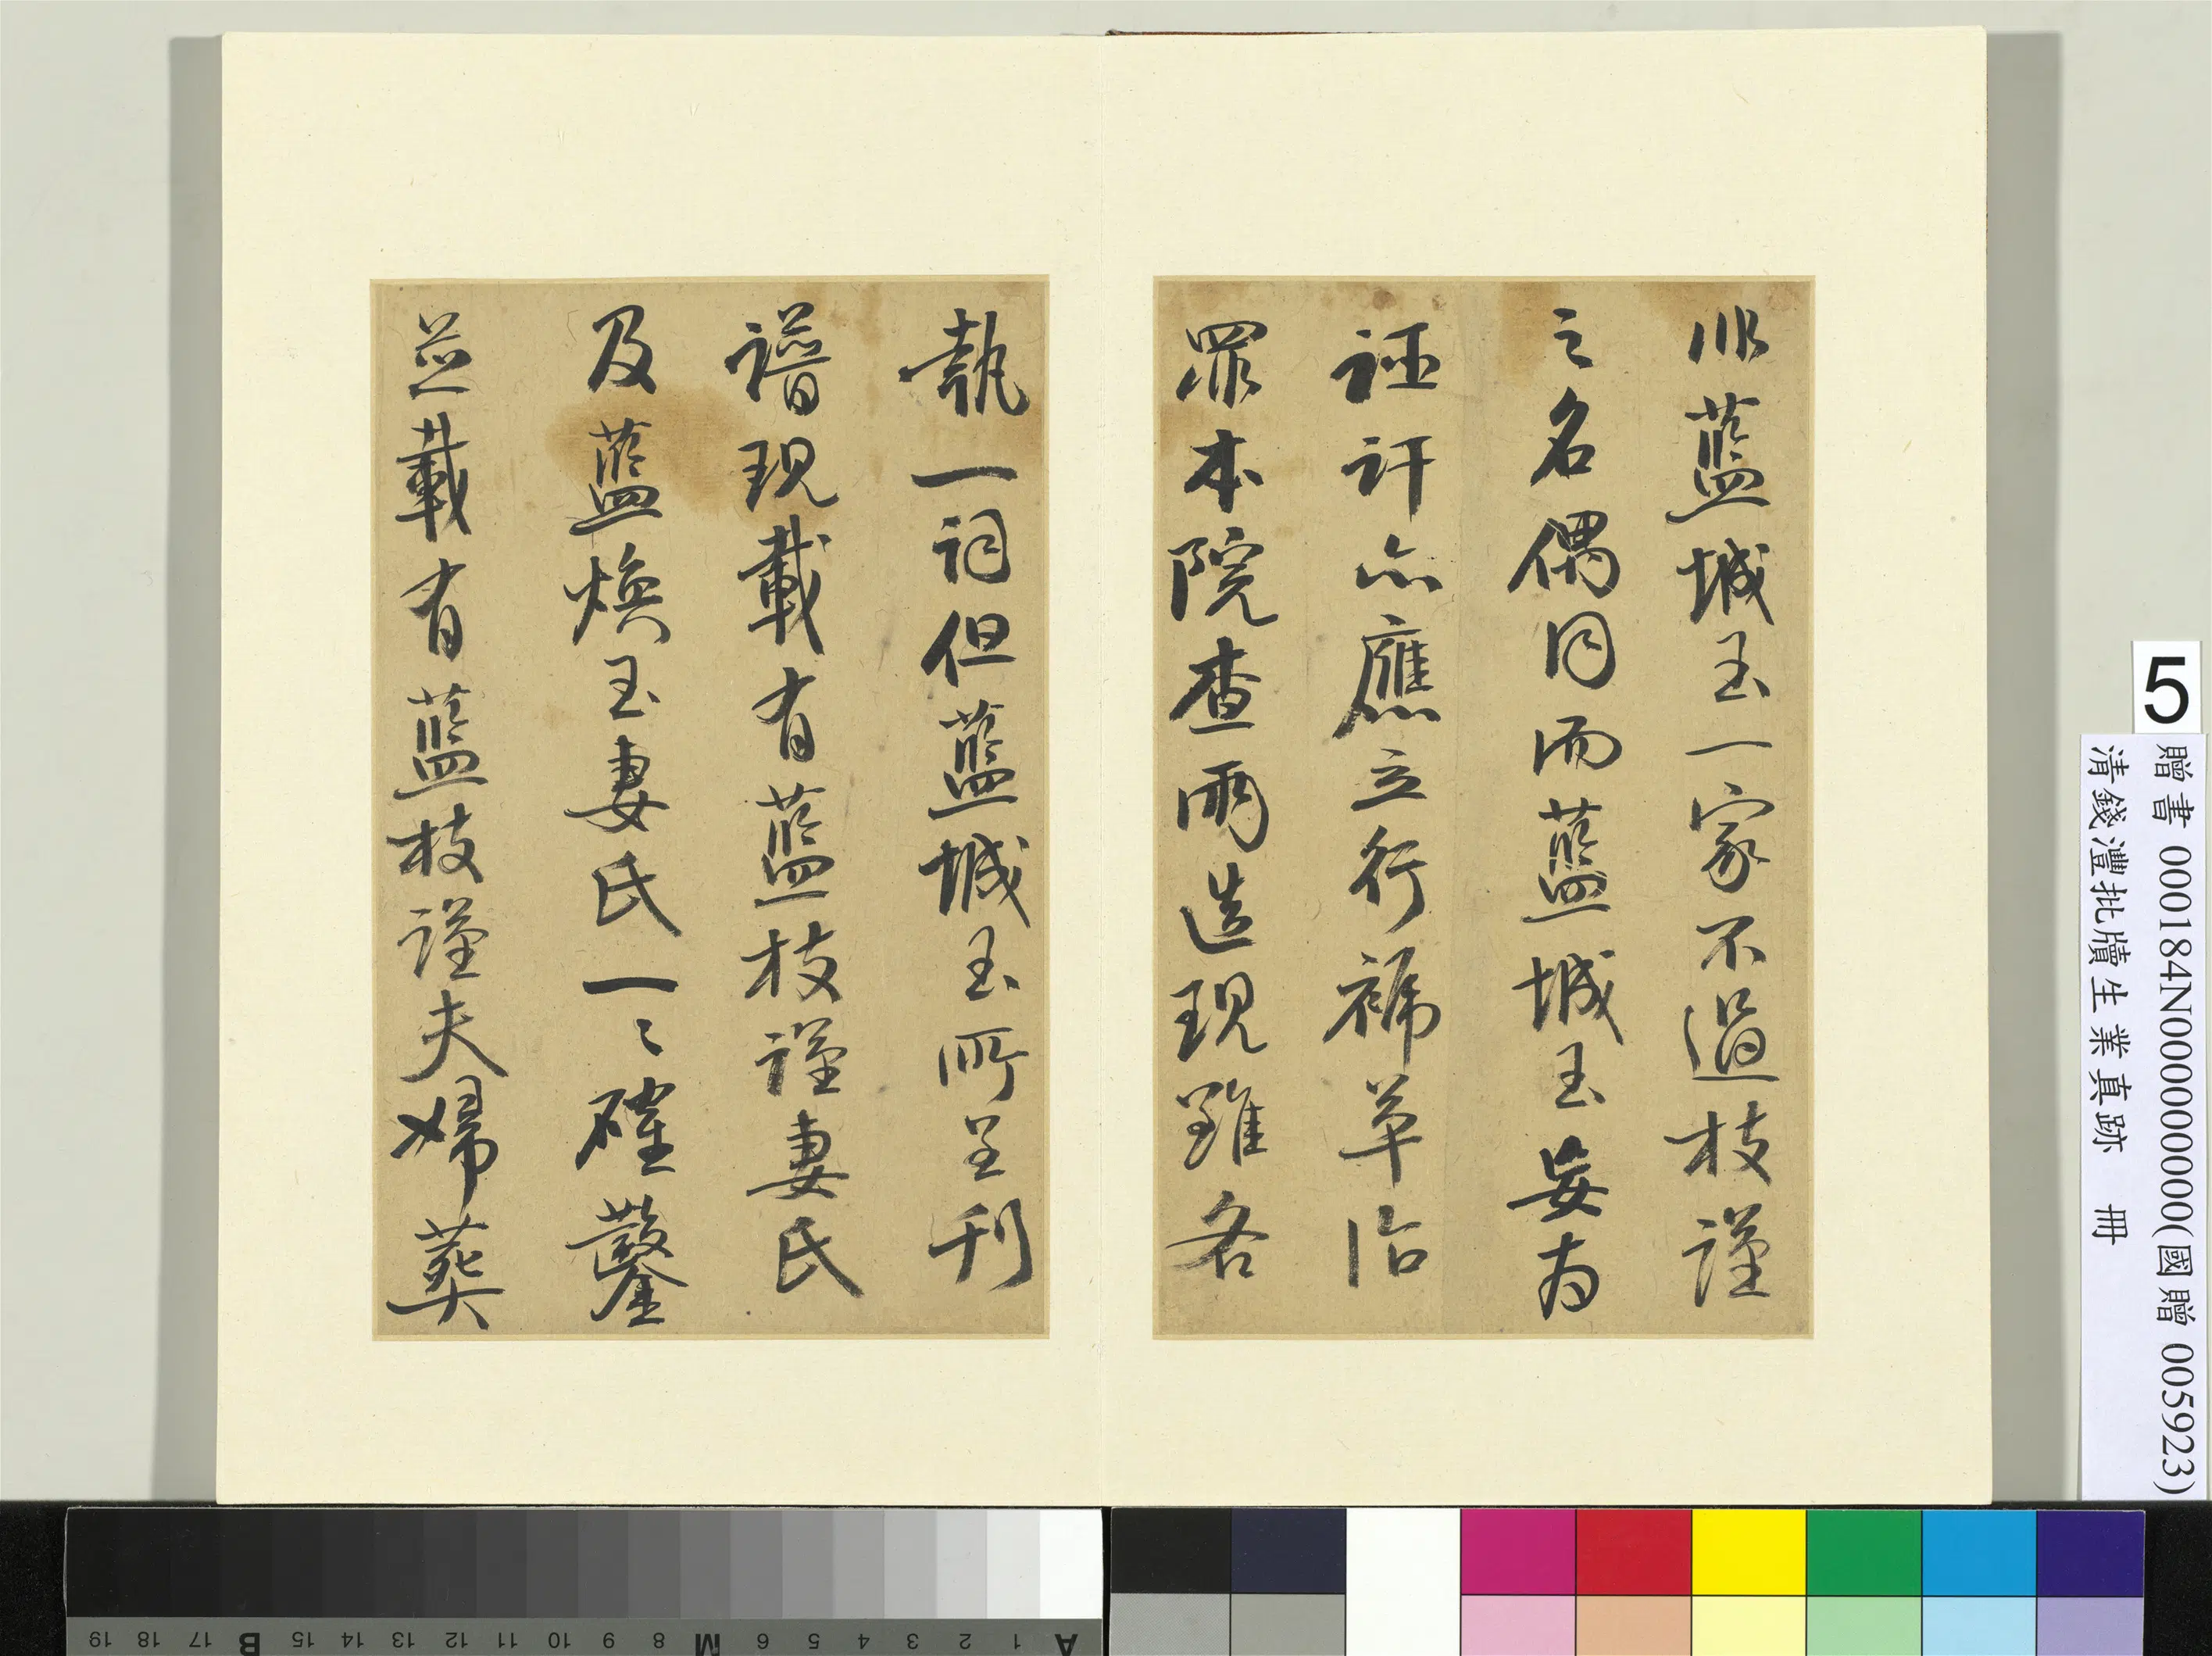 非藍城玉一家不過枝謹
之名偶同而藍城玉妄為
誣訐亦應立行褫革治
罪本院查兩造現雖各
執一詞但藍城玉所呈刊
譜現載有藍枝謹妻氏
及藍煥玉妻氏一〻確鑿
並載有藍枝謹夫婦葬
5
贈書 000184N000000000(國贈 005923)
清錢灃批牘生業真跡 冊
A 1 2 3 4 5 6 M 8 9 10 11 12 13 14 15 B 17 18 19